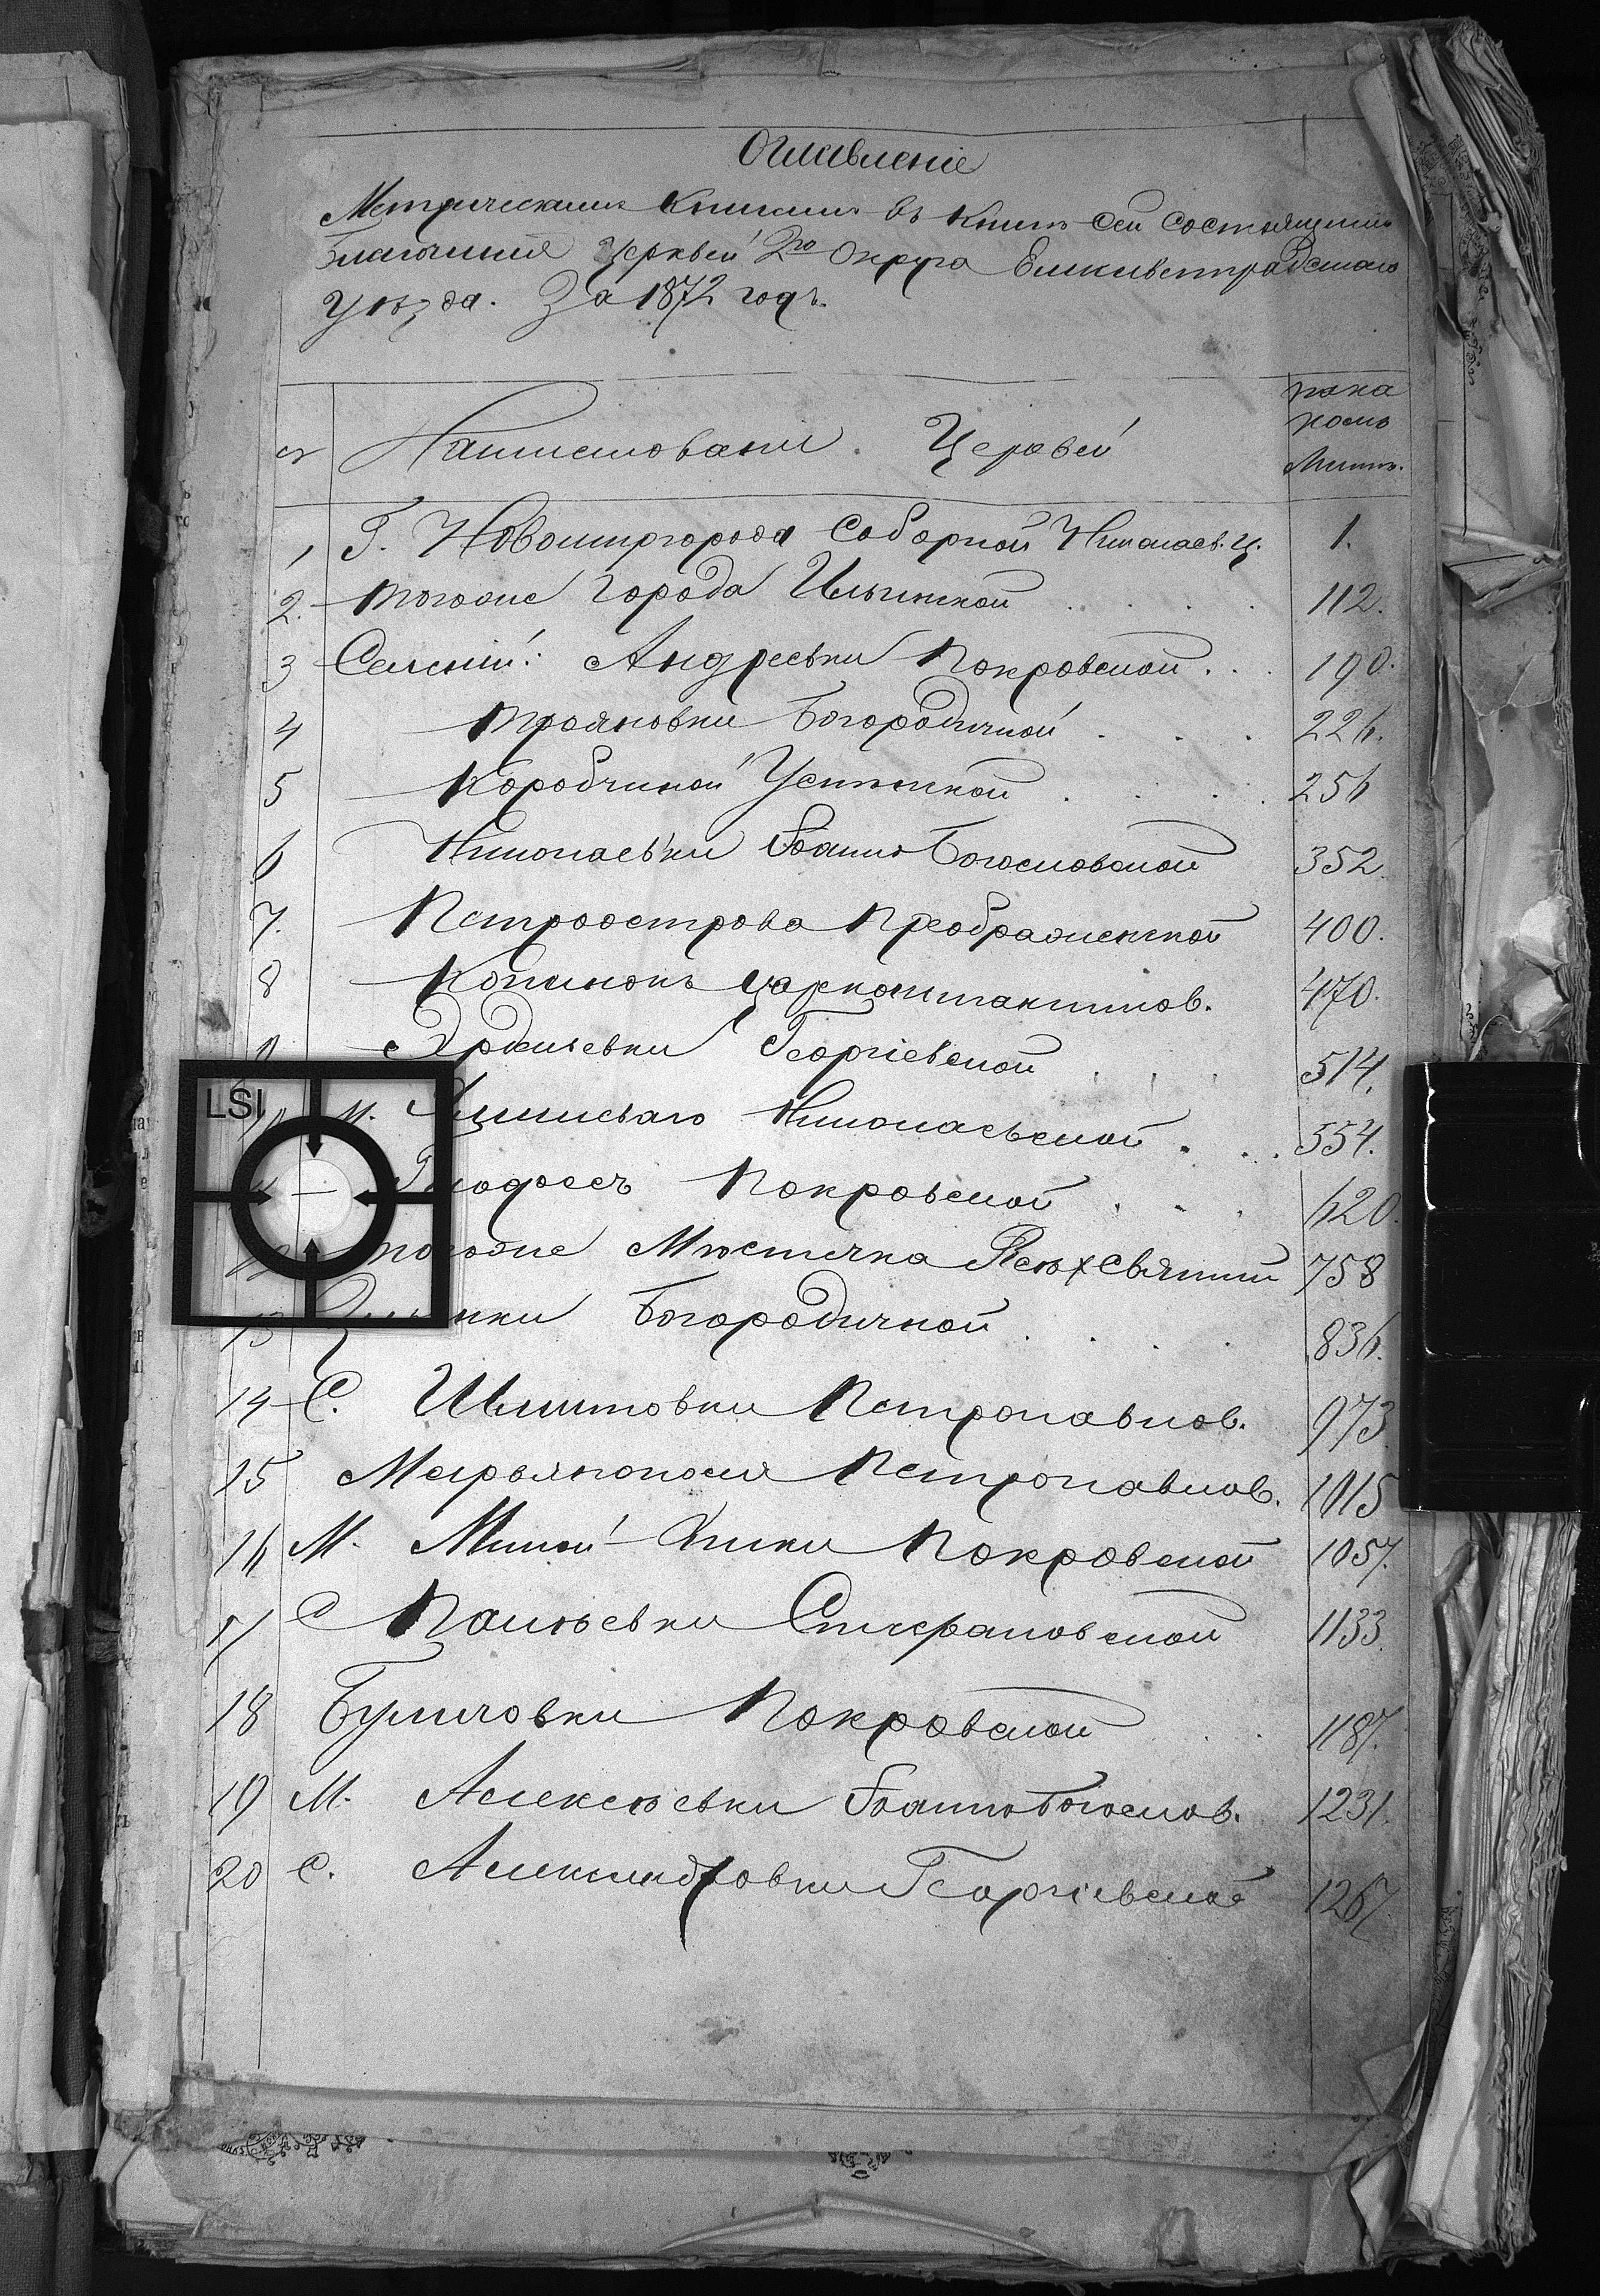 Оглавленіе
Метрическимъ Книгамъ въ Книгѣ сей состоящимъ
Благочинія Церквей 2го Округа Елисаветградскаго
уѣзда. За 1872 годъ.
Наименованіе. Церквей
на ка
комъ
листѣ.
1 Г. Новомиргорода Соборной Николаев. ц. 1.
2. Тогоже Города Ильинской . . . . 112.
3 Селеній: Андреевки Покровской . . . 190.
4 Трояновки Богородичной . . . 226.
5 Коробчиной Успенской . . . . 256
6 Николаевки Іоанно Богословской 352.
7. Петроострова Преображенской 400.
8 Копинокъ Цареконстантинов. 470.
9 Эрделевки Георгіевской . . . 514.
м. Николаевской . . . 554.
Покровской . . . 620.
12 Тогоже Мѣстечка Всѣхсвятчи 758
13 Богородичной . . . 836.
14 С. Петропавлов. 973
15 Марьянополя Петропавлов. 1015
16 М. Малой-Виски Покровской 1057.
17 С Паліевки Стефановской 1133.
18 Покровской . . 1187.
19 М. Алексѣевки Іоанно Богослов. 1231.
20 С. Александровки Георгіевской 1267.
LSI